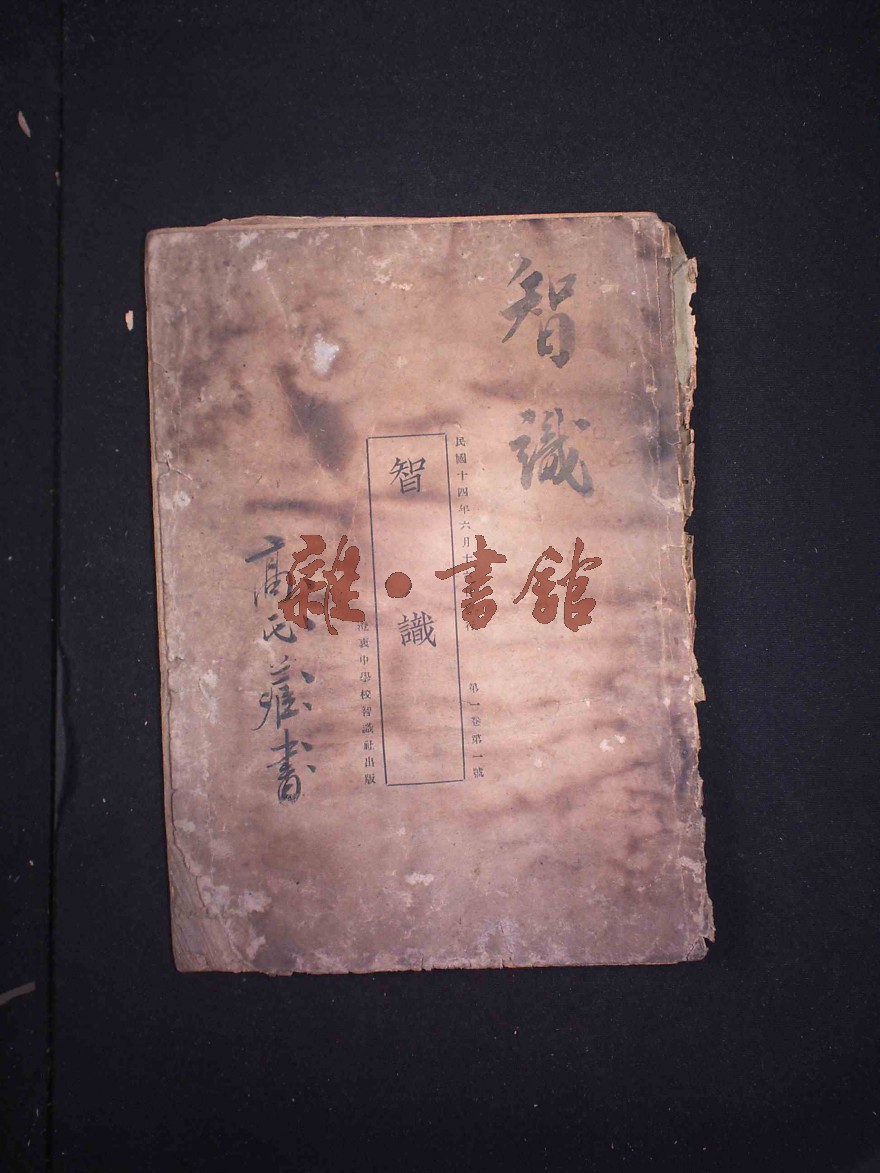 智識
民國十四年六月十
第一卷第一號
智識
中學校智識社出版
高氏藏書
雜·書館